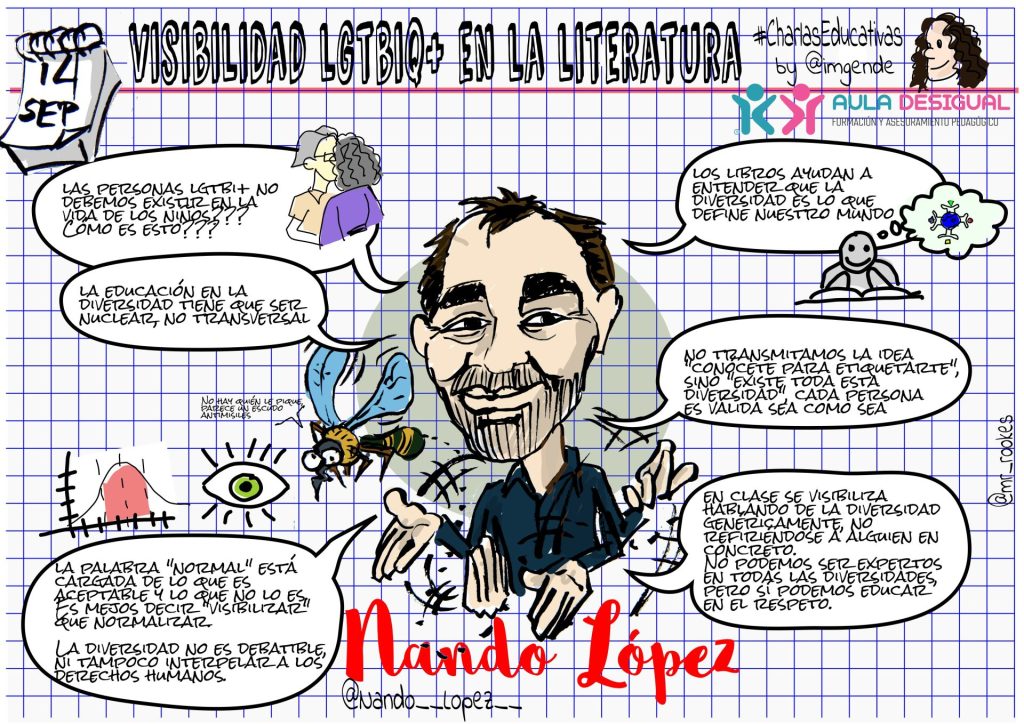 12
SEP
VISIBILIDAD LGTBIQ+ EN LA LITERATURA
#CharlasEducativas
by @imgende
AULA DESIGUAL
FORMACIÓN Y ASESORAMIENTO PEDAGÓGICO
LAS PERSONAS LGTBI+ NO
DEBEMOS EXISTIR EN LA
VIDA DE LOS NIÑOS???
CÓMO ES ESTO???
LA EDUCACIÓN EN LA
DIVERSIDAD TIENE QUE SER
NUCLEAR, NO TRANSVERSAL
NO HAY QUIÉN LE PIQUE,
PARECE UN ESCUDO
ANTIMISILES
LA PALABRA "NORMAL" ESTÁ
CARGADA DE LO QUE ES
ACEPTABLE Y LO QUE NO LO ES.
ES MEJOS DECIR "VISIBILIZAR"
QUE NORMALIZAR.
LA DIVERSIDAD NO ES DEBATIBLE,
NI TAMPOCO INTERPELAR A LOS
DERECHOS HUMANOS.
LOS LIBROS AYUDAN A
ENTENDER QUE LA
DIVERSIDAD ES LO QUE
DEFINE NUESTRO MUNDO
NO TRANSMITAMOS LA IDEA
"CONÓCETE PARA ETIQUETARTE",
SINO "EXISTE TODA ESTA
DIVERSIDAD", CADA PERSONA
ES VÁLIDA SEA COMO SEA
EN CLASE SE VISIBILIZA
HABLANDO DE LA DIVERSIDAD
GENÉRICAMENTE, NO
REFIRIÉNDOSE A ALGUIEN EN
CONCRETO.
NO PODEMOS SER EXPERTOS
EN TODAS LAS DIVERSIDADES,
PERO SÍ PODEMOS EDUCAR
EN EL RESPETO.
@mr_rookes
Nando López
@Nando__Lopez__